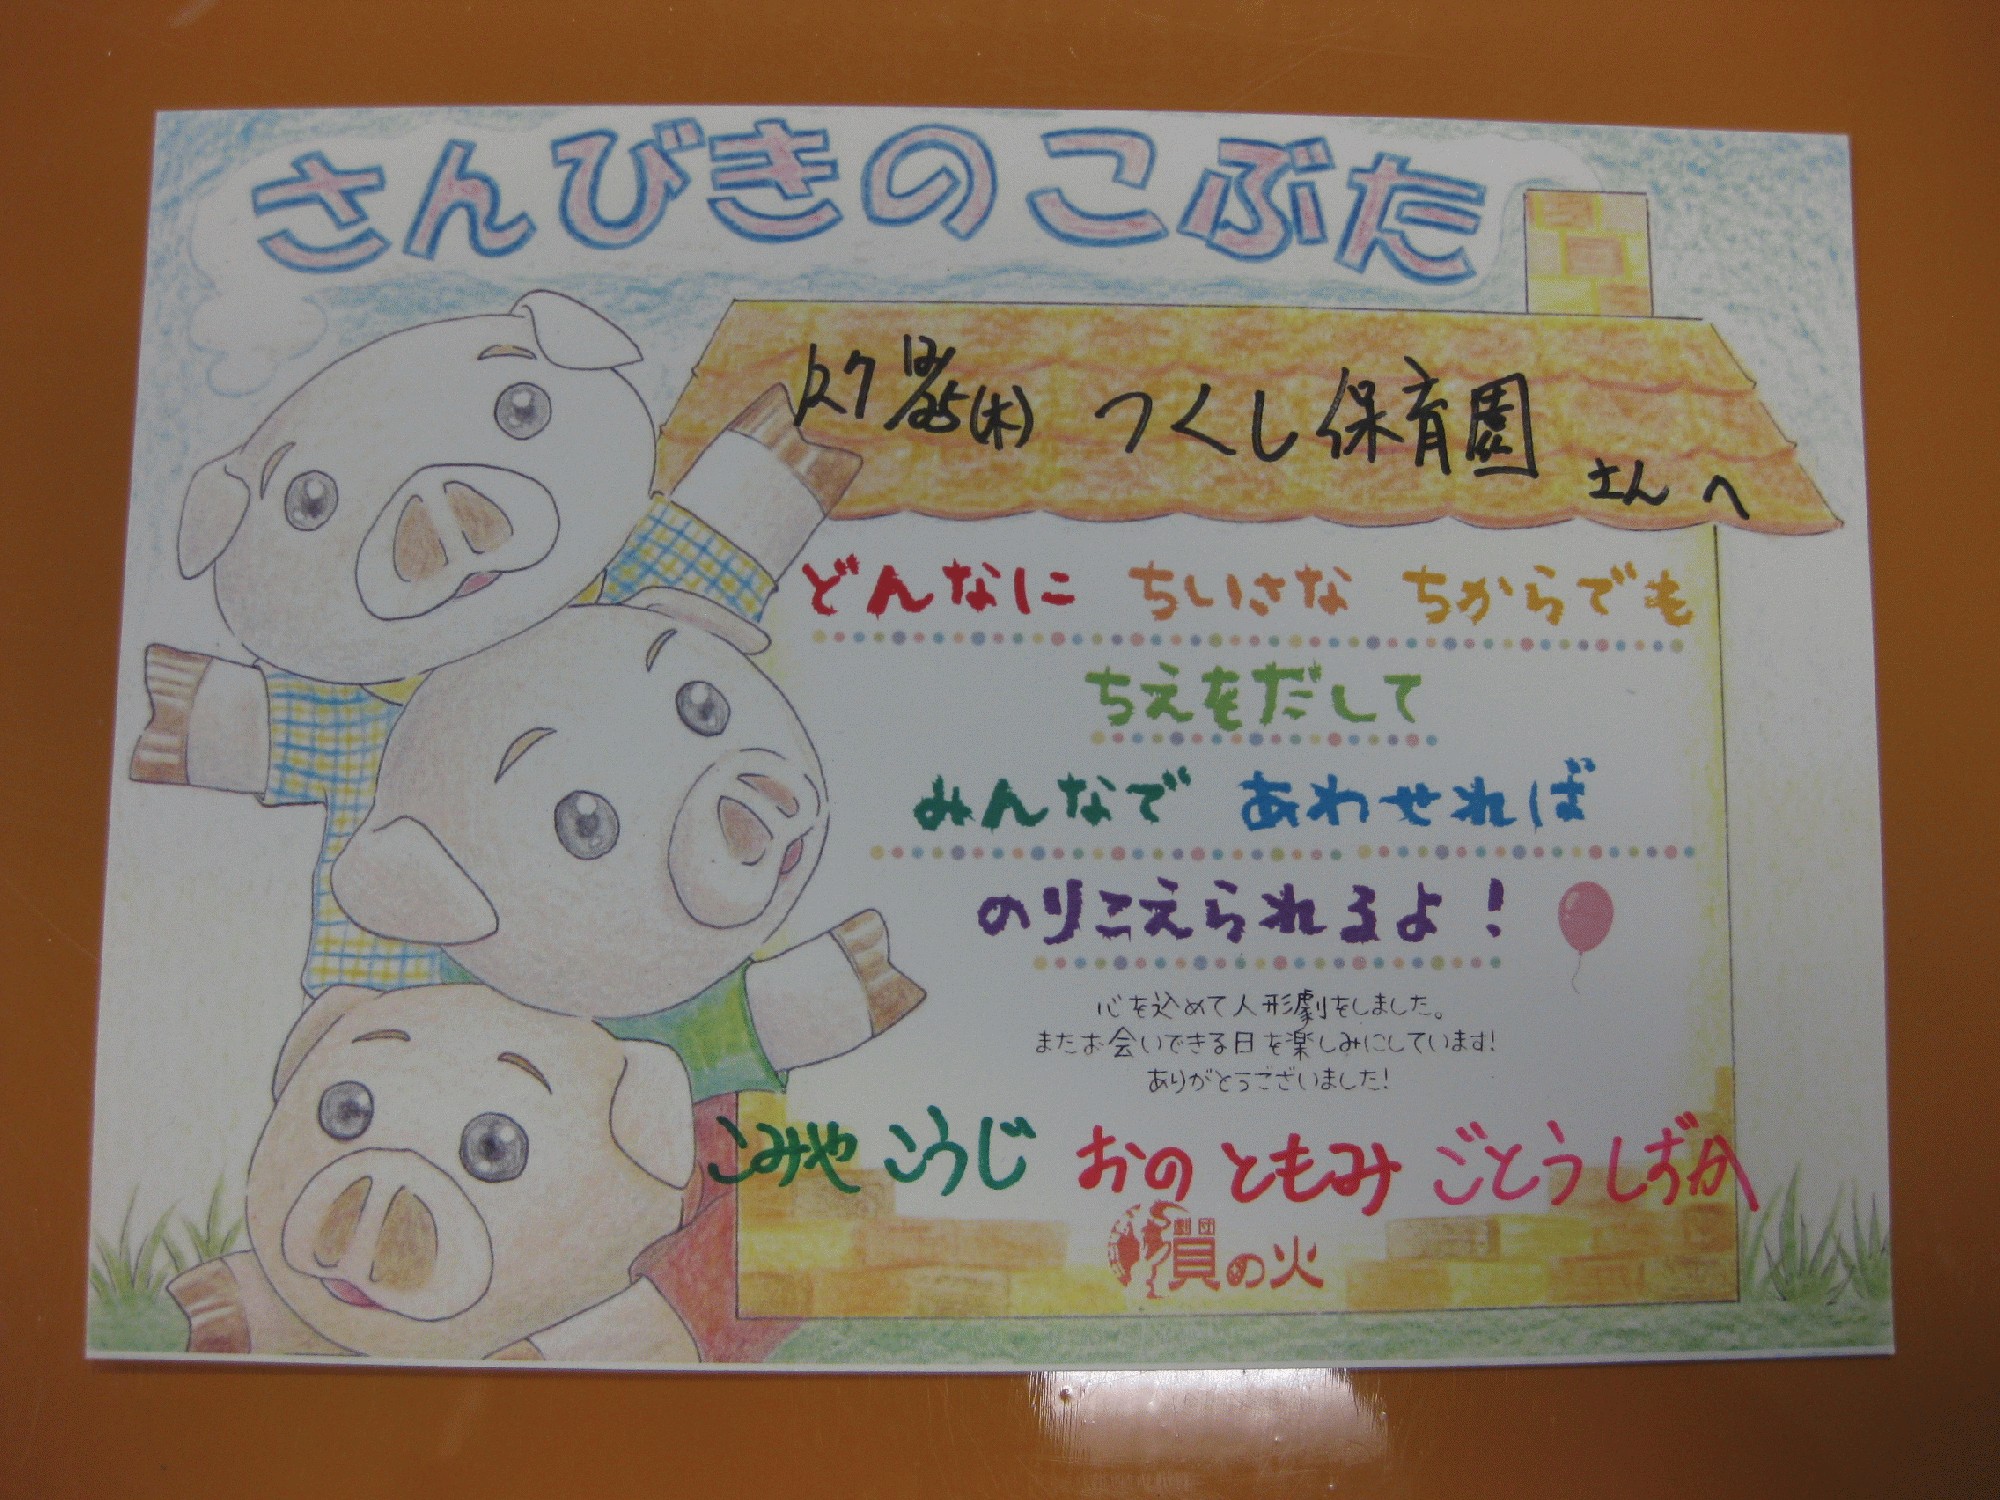 さんびきのこぶた
R7 12/25(木) つくし保育園 さんへ
どんなに ちいさな ちからでも
ちえをだして
みんなで あわせれば
のりこえられるよ!
心を込めて人形劇をしました。
またお会いできる日を楽しみにしています!
ありがとうございました!
こみや こうじ おの ともみ ごとう しずか
劇団
貝の火